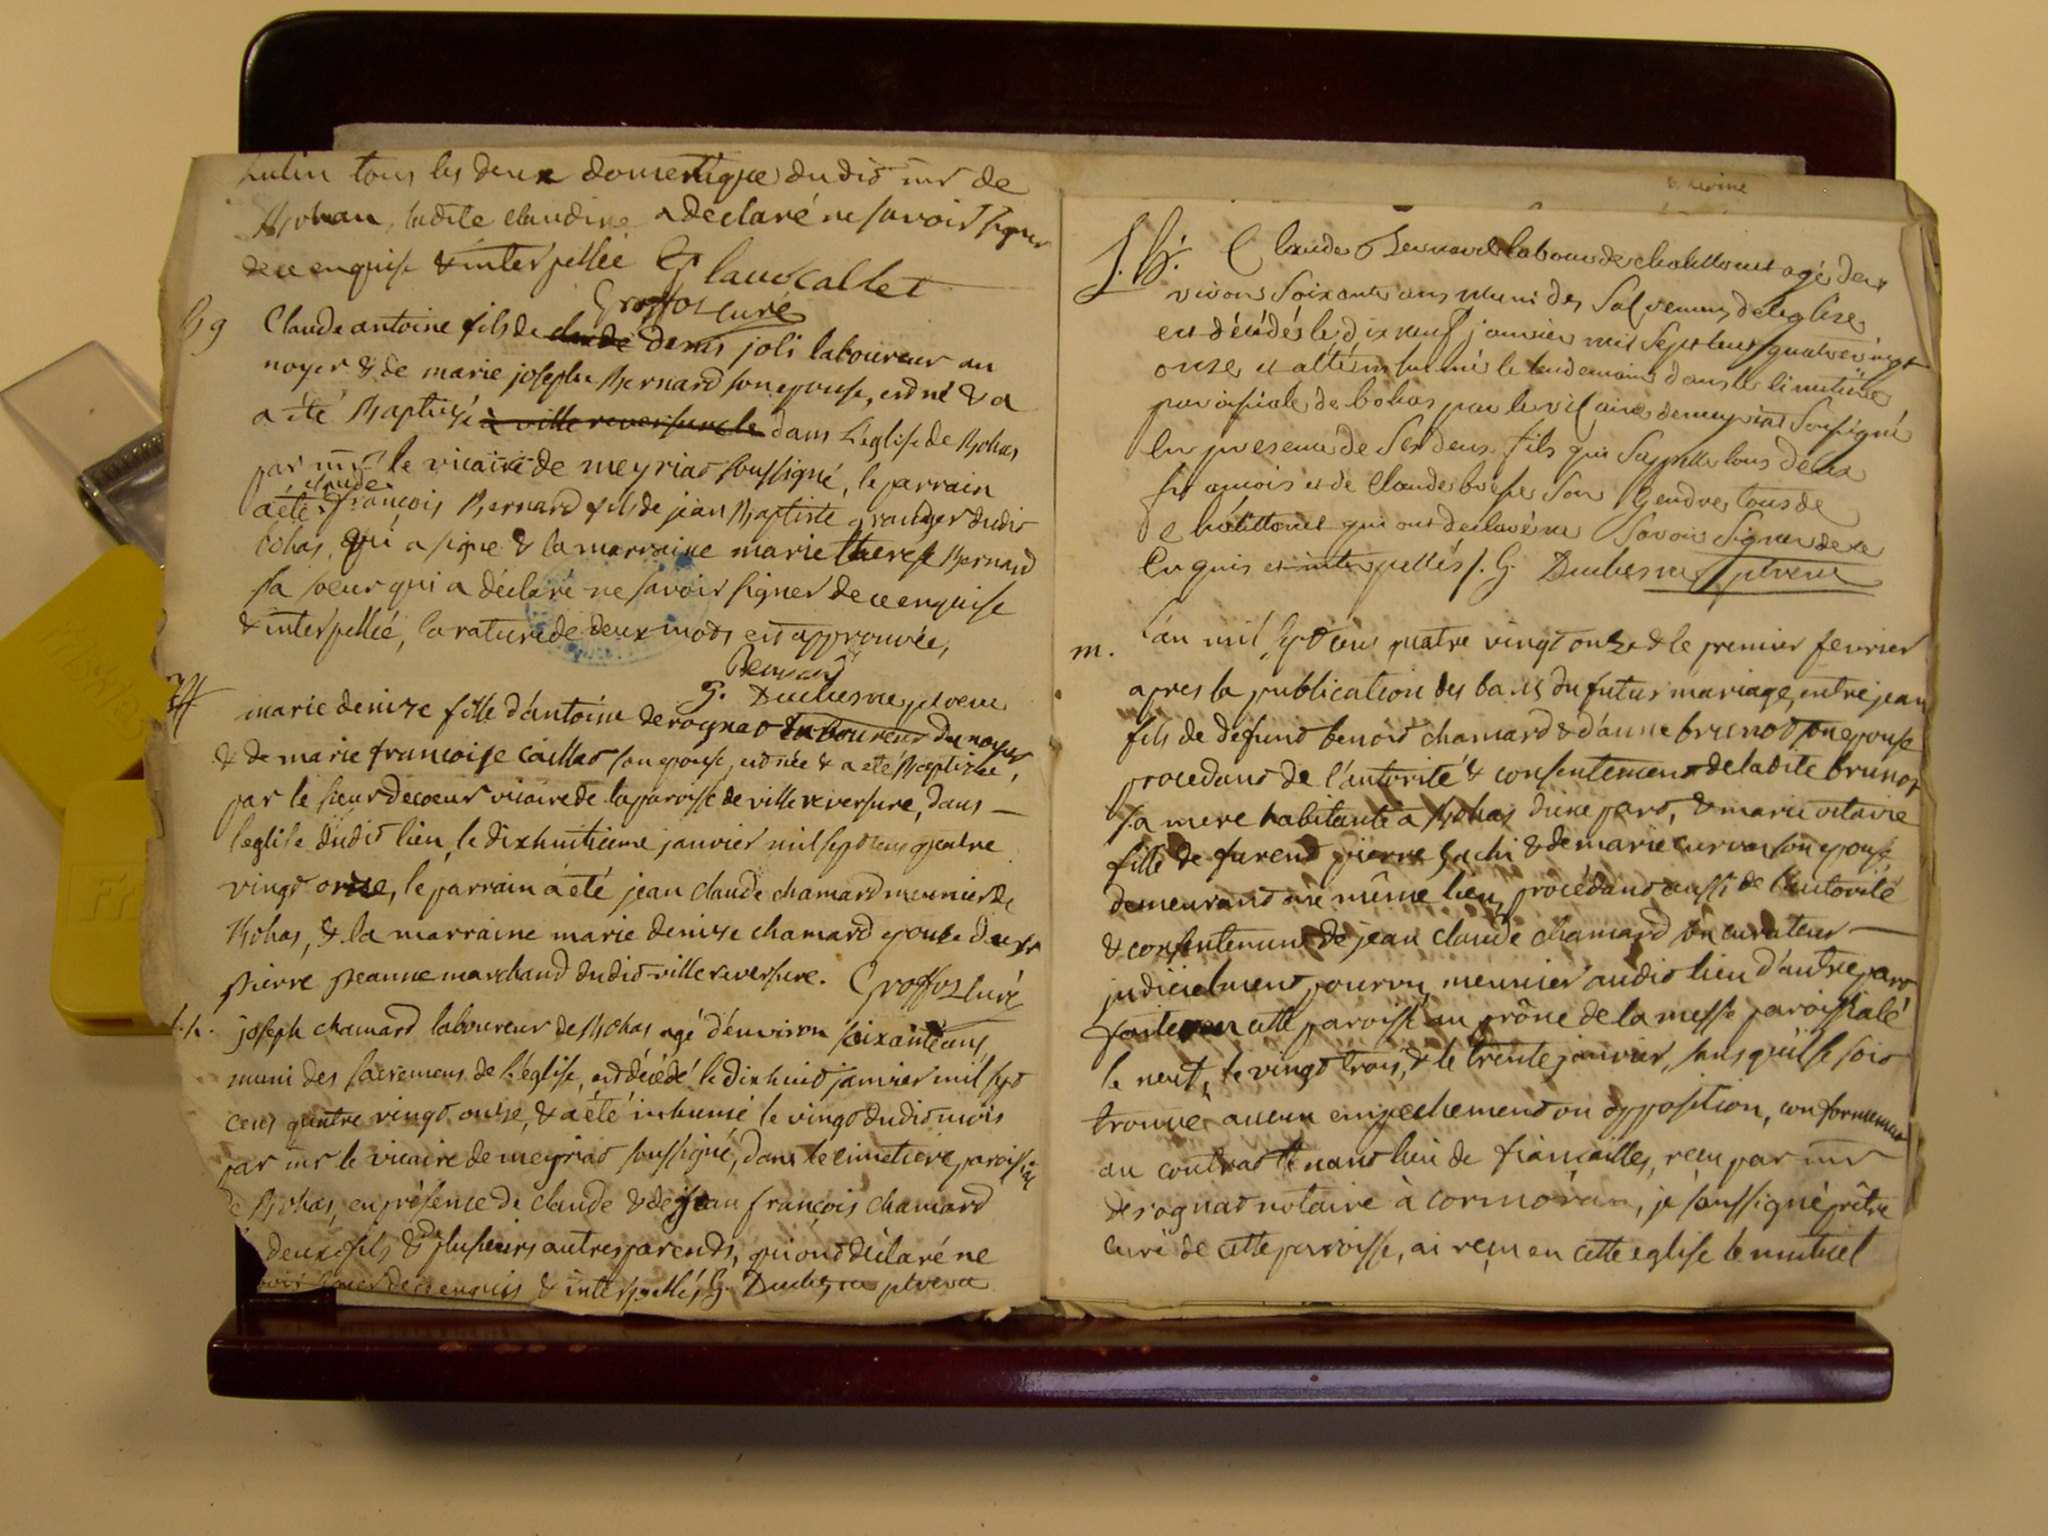 tous les deux domestique dudit mr de
Rohan, ladite claudine a declaré ne savoir signer
de ce enquise & interpellée Claud Callet
Groffoz curé
Bg Claude antoine fils de claude denis joli laboureur au
noyer & de marie josephe Bernard son epouse, est né & a
a été Baptisé à ville reversure le dans L'eglise de Bohas
par mr le vicaire de meyriat soussigné, le parrain
claude
a été françois Bernard fils de jean Baptiste granger dudit
bohas, qui a signé & la marraine marie therese Bernard
sa soeur qui a déclaré ne savoir signer de ce enquise
& interpellée, la rature de deux mots est approuvée,
Bernard
G. Duchesne ptre vic
marie denize fille d'antoine derognat laboureur du noyer
& de marie francoise caillat son epouse, est née & a eté Baptizée,
par le sieur decoeur vicaire de la paroisse de ville reversure, dans
l'eglise dudit lieu, le dixhuitieme janvier mil sept cens quatre
vingt onze, le parrain a été jean claude chamard meunier de
Bohas, & la marraine marie denize chamard epouse de
pierre jeanne marchand dudit ville reversure. Groffoz curé
joseph chamard laboureur de Bohas agé d'environ soixante ans,
muni des sacremens de L'église, est décédé le dixhuit janvier mil sept
cens quatre vingt onze, & a été inhumé le vingt dudit mois
par mr le vicaire de meyriat soussigné, dans le cimetiere paroissial
de Bohas, en présence de claude & de jean françois chamard
deux fils & de plusieurs autres parends, qui ont déclaré ne
savoir signer de ce enquis & interpellés G. Duchesne ptre vic
S. h. Claude Bernard labour de chatillonet agé den
viron Soixante ans muni des Sacremens de leglise
est décédé le dix neuf janvier mil Sept cens quatre vingt
onze et a été inhumé le lendemain dans le cimetiére
paroissiale de bohas par le vicaire de meyriat Soussigné
En presence de Ses deux fils qui Sappelle tous deux
françois et de Claude Son Gendre tous de
Chatillonet qui ont declaré ne Savoir Signer de ce
Enquis et interpellés /. G. Duchesne ptre vic
m. L'an mil sept cens quatre vingt onze & le premier fevrier
apres la publication des bans du futur mariage, entre jean
fils de défunt benoit chamard & d'anne brunot son epouse
procedant de l'autorité & consentement de ladite brunot
sa mere habitante a Bohas d'une part, & marie vitaire
fille de furent pierre gachi & de marie curvat son epouse
demeurant au même lieu, procédant aussi de l'autorité
& consentement de jean claude chamard son curateur
judicielment pourvu meunier audit lieu d'autre part
faite en cette paroisse au prône de la messe paroissiale
le neuf, le vingt trois, & le trente janvier, sans qu'il se soit
trouvé aucun empechement ou opposition, conformement
au contrat tenant lieu de fiançailles, reçu par mr
derognat notaire à cormoran, je soussigné prêtre
curé de cette paroisse, ai reçu en cette eglise le mutuel